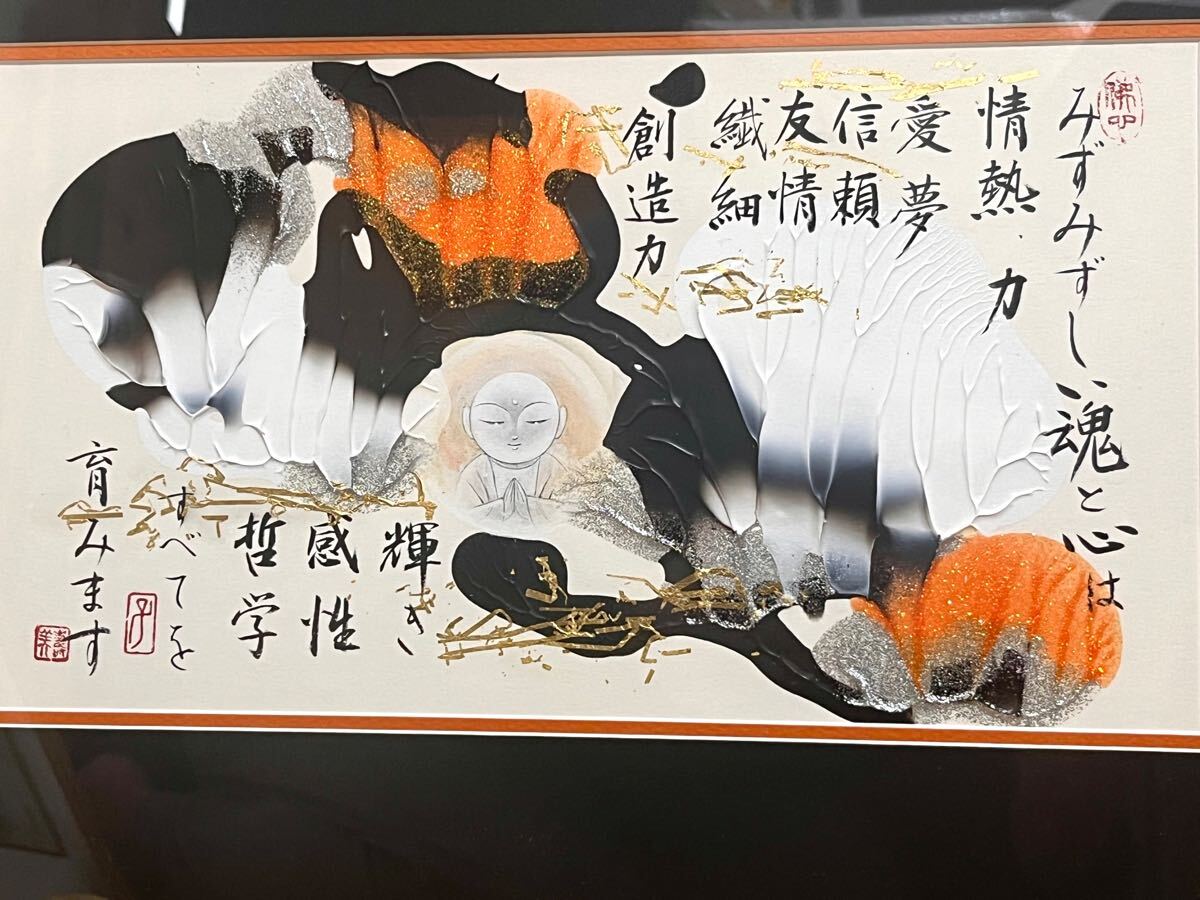 みずみずしい魂と心は
情熱力
愛夢
信頼
友情
繊細
創造力
輝き
感性
哲学
すべてを
育みます